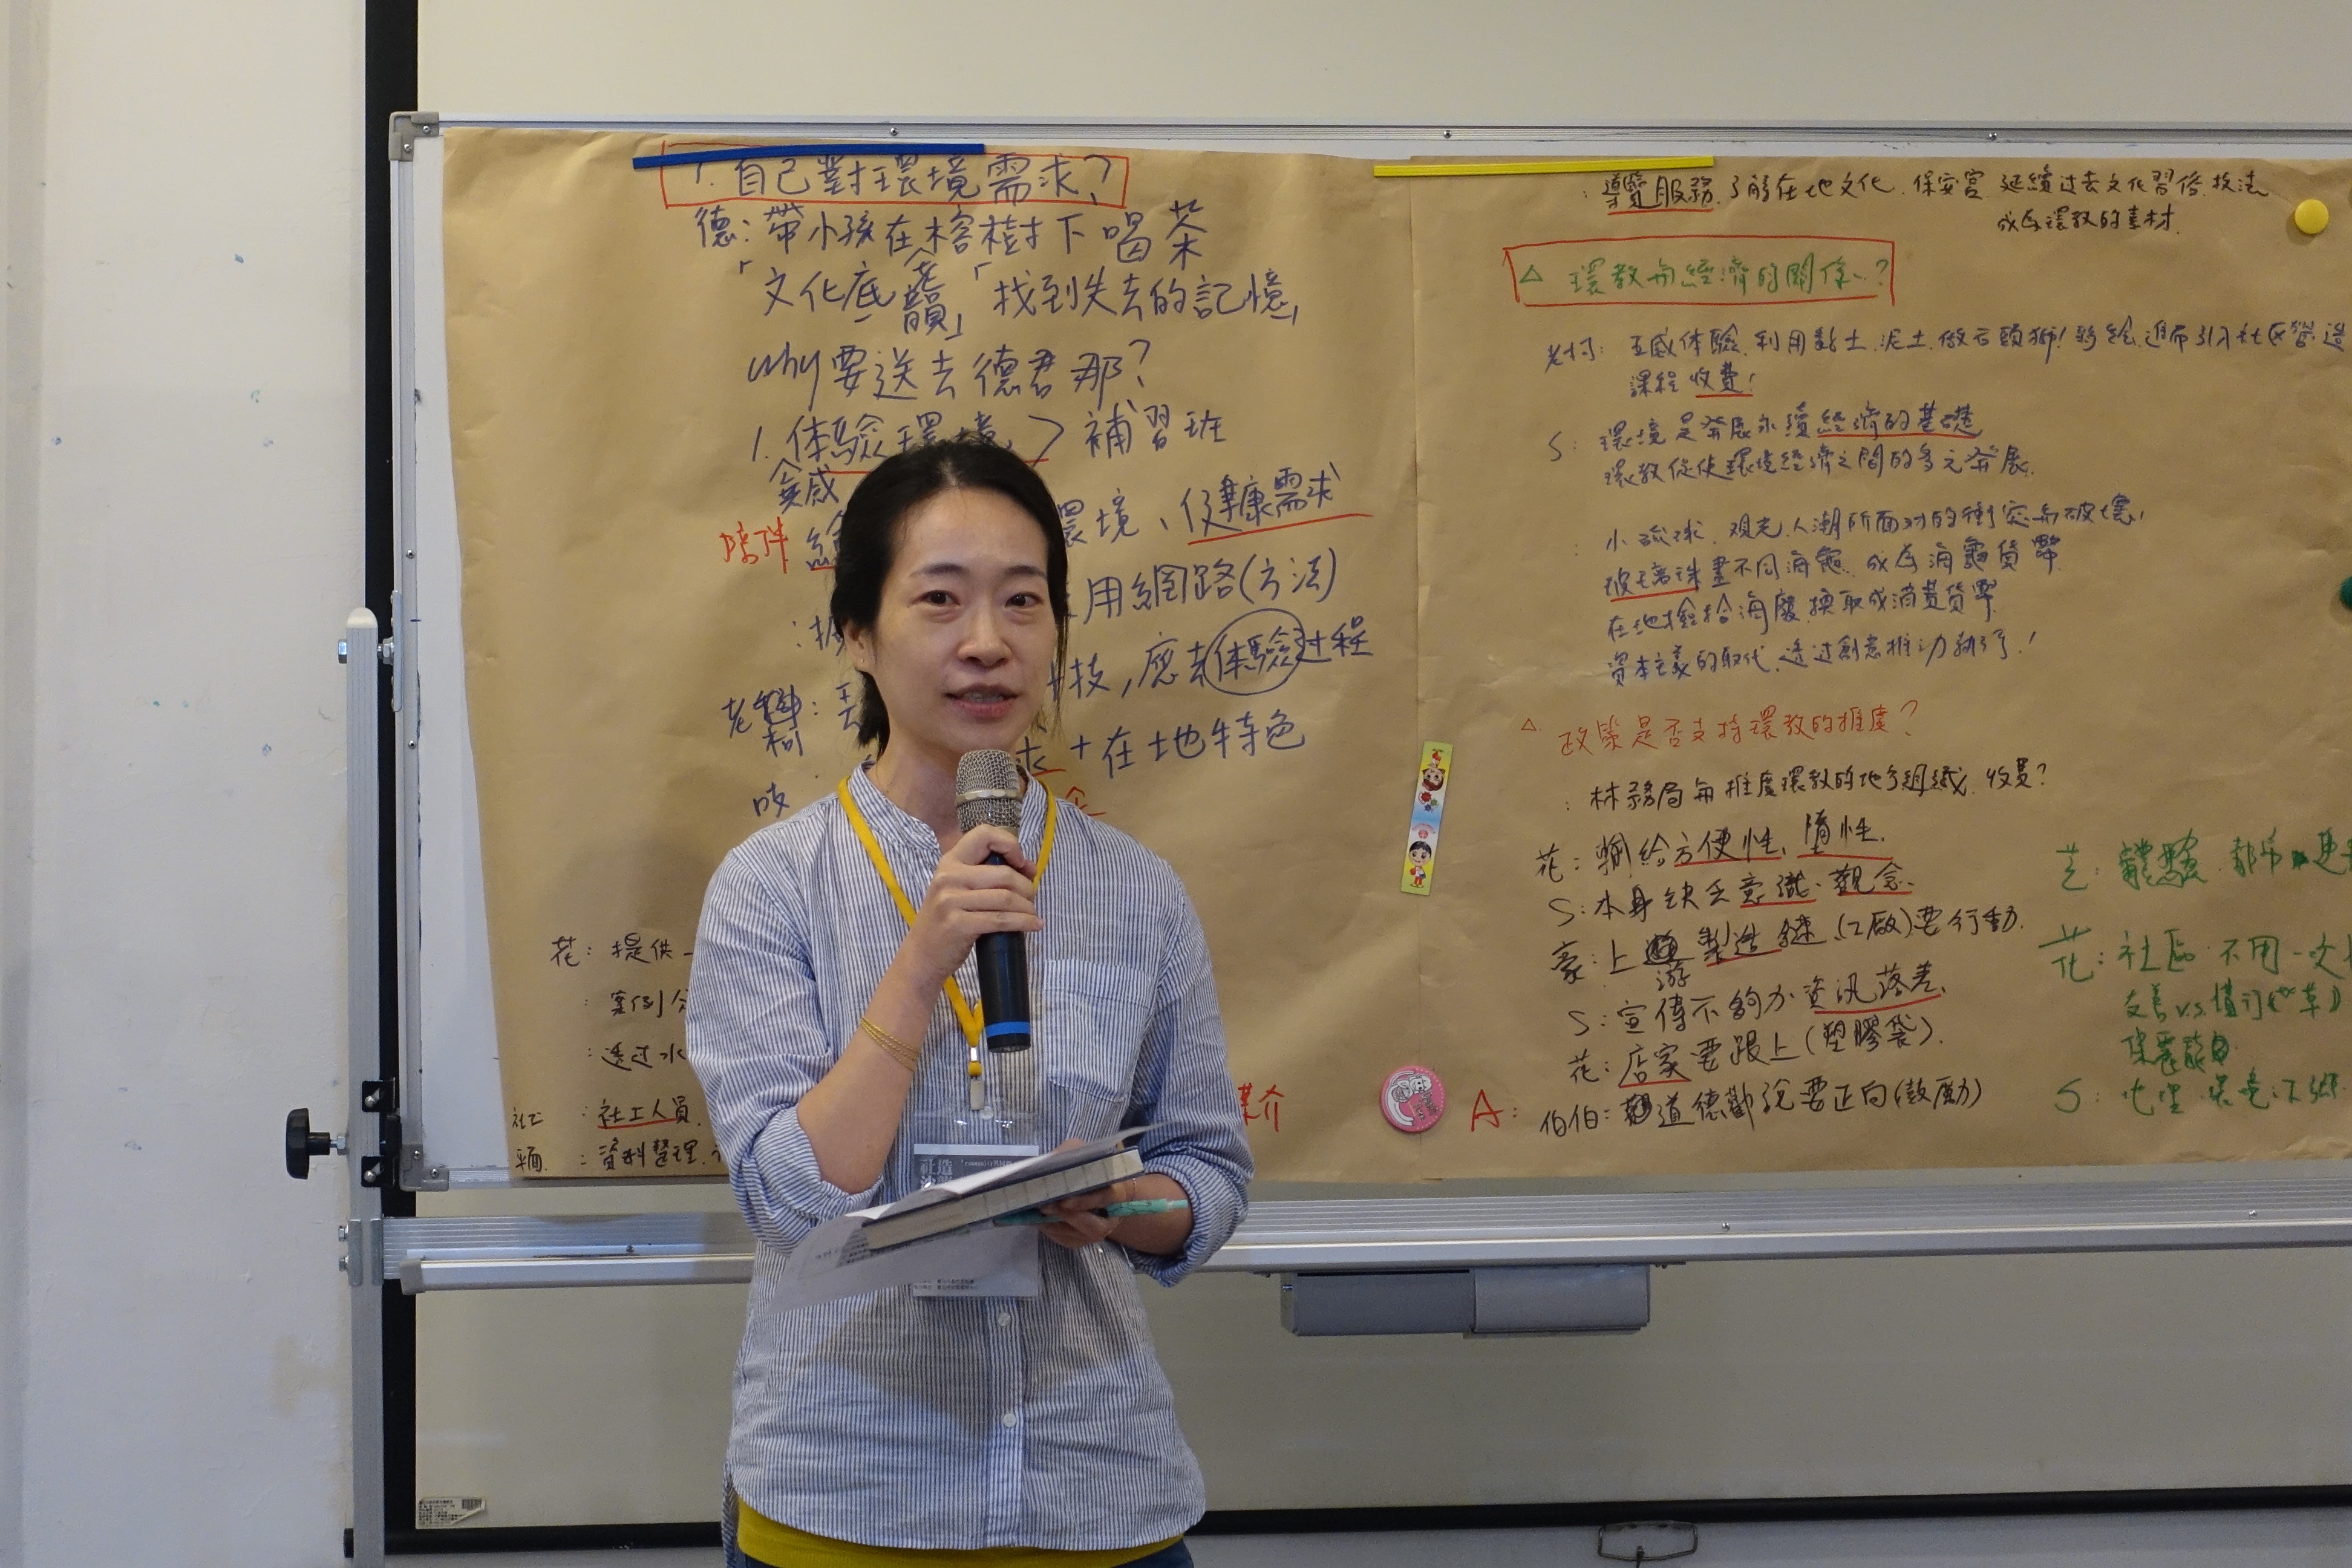 1. 自己對環境需求?
德:帶小孩在榕樹下喝茶
「文化底蘊」「找到失去的記憶」
why要送去德君那?
1.体驗環境 > 補習班
共感
陪伴
環境、健康需求
用網路(方法)
技,應去体驗过程
老柯:
求+在地特色
花:提供
:案例分
:透过水
社工 :社工人員
平面 :資料整理
媒介
:導覽服務.了解在地文化.保安宮 延續过去文化習俗.技法
成為環教的素材.
△ 環教与經濟的關係..?
老柯:五感体驗.利用黏土.泥土.做石頭獅!彩繪.進而引入社区營造
課程 收費!
S:環境是發展永續經濟的基礎
環教促使環境經濟之間的多元發展.
:小琉球.观光人潮所面对的衝突与破壞!
玻璃珠畫不同海龜.成為海龜貨幣
在地撿拾海廢.換取成消費貨幣
資本主義的取代.透过創意推动執行!
△ 政策是否支持環教的推廣?
:林務局与推廣環教的地方組織.收費?
花:輸給方便性、惰性.
S:本身缺乏意識.觀念.
豪:上游 製造鏈(工廠)要行動.
S:宣傳不夠力 資訊落差.
花:店家要跟上(塑膠袋).
A: 伯伯:道德勸說要正向(鼓勵)
芝:體驗.都市
花:社區 不用一次
友善v.s.慣行(草)
S:
社造